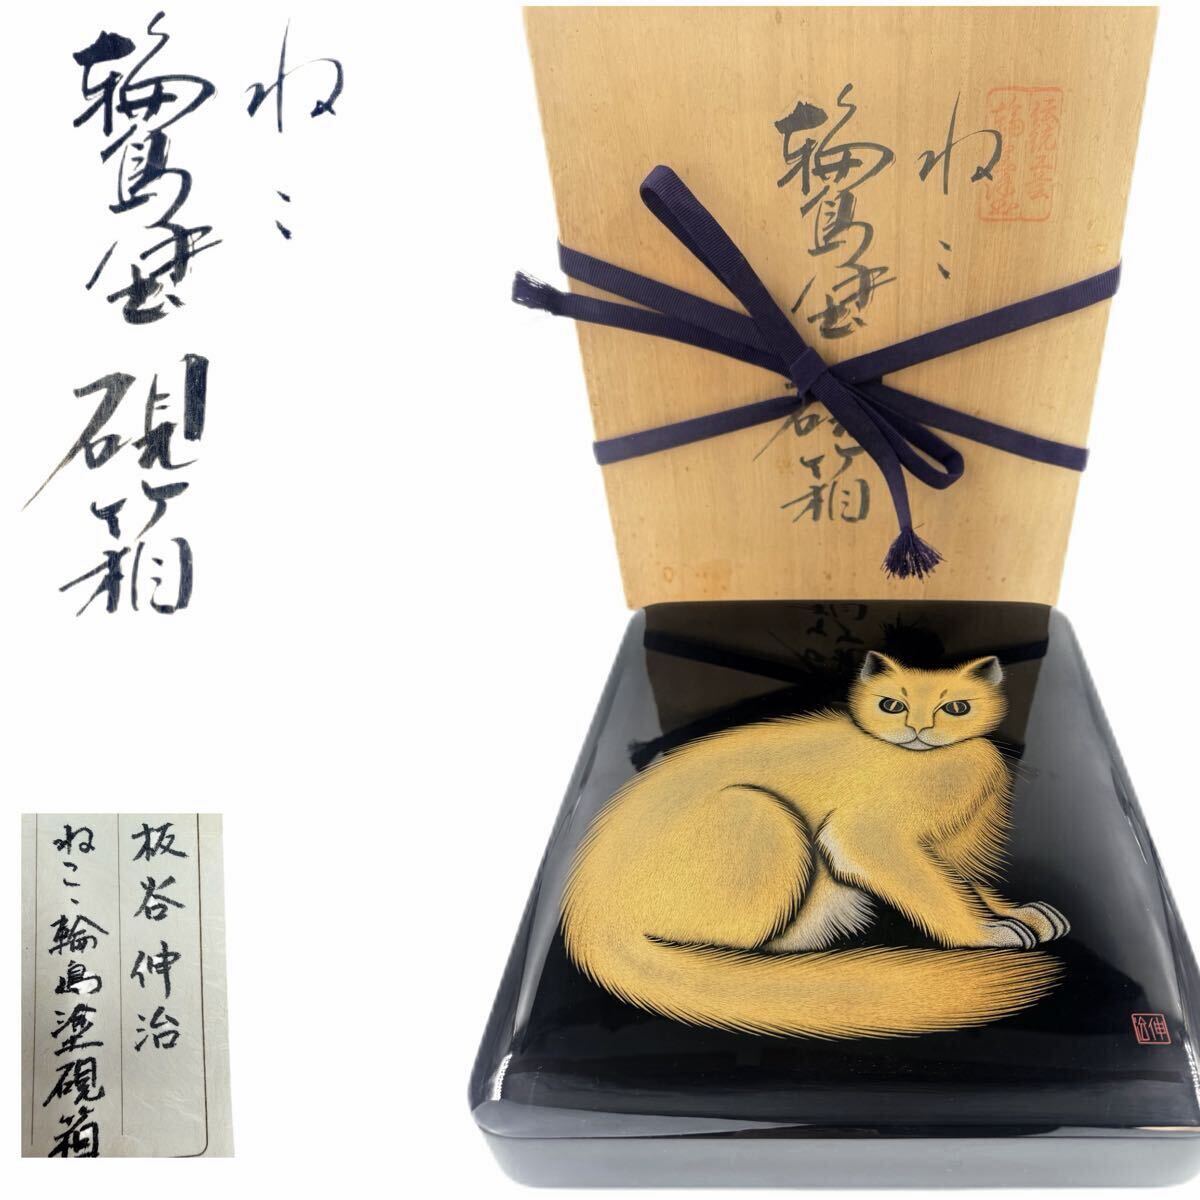 ねこ
輪島塗
硯箱
ねこ
輪島塗
硯箱
伝統工芸
輪島塗
板谷伸治
ねこ、輪島塗硯箱
伸治